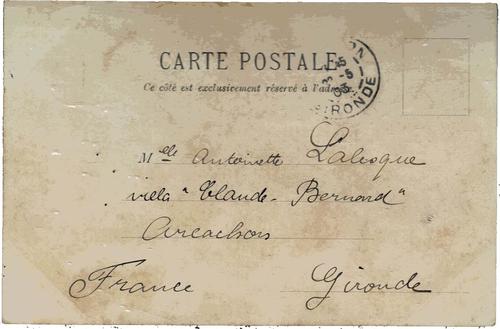 CARTE POSTALE
Ce côté est exclusivement réservé à l'adresse
GIRONDE
Melle Antoinette Labesque
villa "Claude-Bernard"
Arcachon
France Gironde